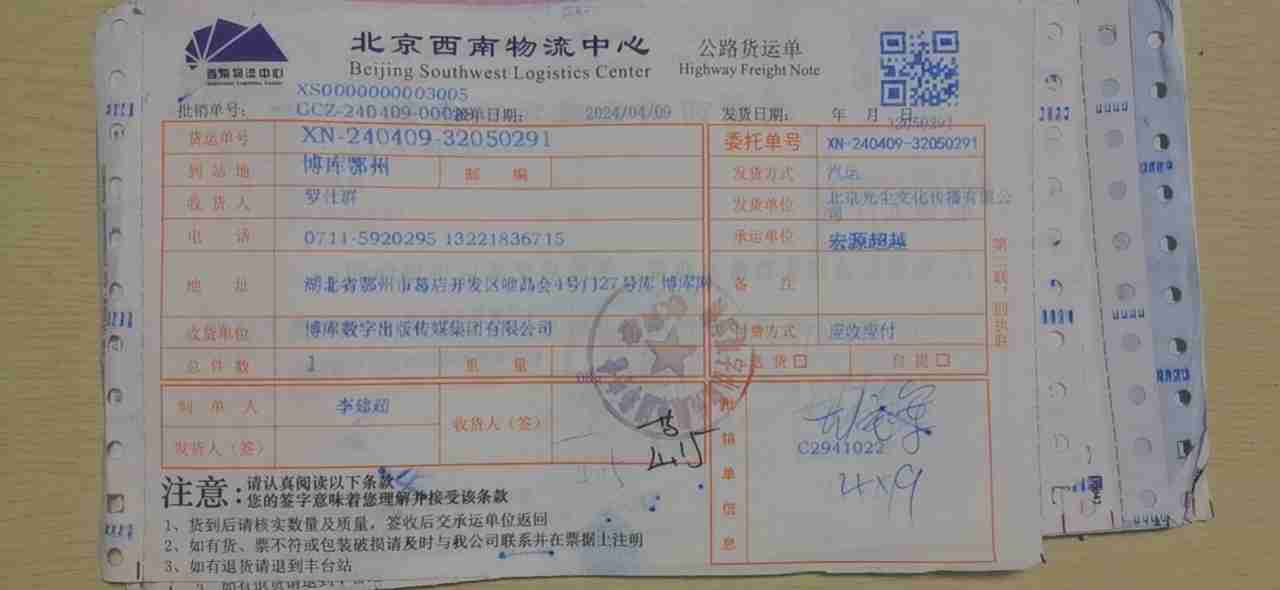 西南物流中心
北京西南物流中心
Beijing Southwest Logistics Center
公路货运单
Highway Freight Note
XS0000000003005
批销单号:
单日期: 2024/04/09
发货日期: 年 月 日
32050291
货运单号 XN-240409-32050291
委托单号 XN-240409-32050291
到站地 博库鄂州 邮 编
发货方式 汽运
收货人 罗仕群
发货单位 北京光尘文化传播有限公司
电 话 0711-5920295 13221836715
承运单位 宏源超越
地 址 湖北省鄂州市葛店开发区 4号门27号库 博库
备 注
收货单位 博库数字出版传媒集团有限公司
付费方式 应收应付
总件数 1 重 量
退货 自提
第二联:回执联
制单人 李婕超
收货人(签)
4.15
发货人(签)
批销单信息
C2941022
4x9
注意:
请认真阅读以下条款
您的签字意味着您理解并接受该条款
1、货到后请核实数量及质量,签收后交承运单位返回
2、如有货、票不符或包装破损请及时与我公司联系并在票据上注明
3、如有退货请退到丰台站